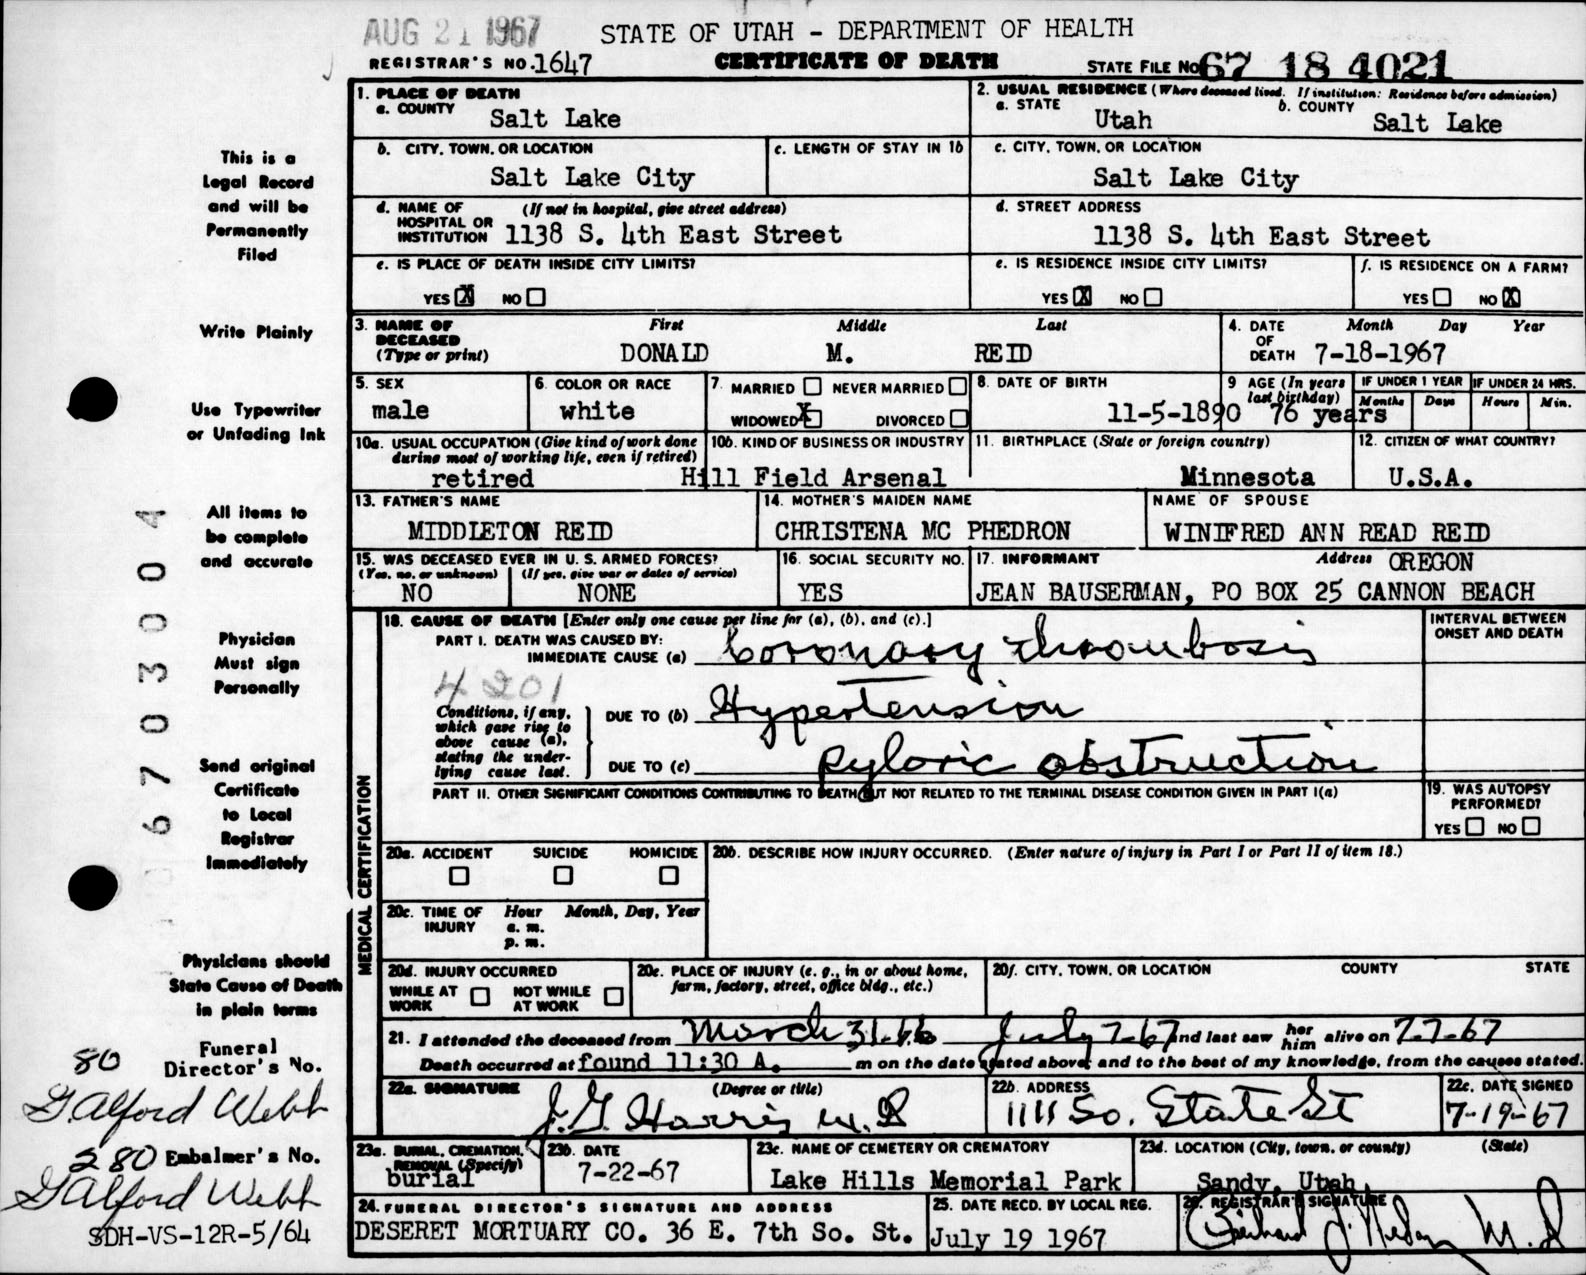 AUG 21 1967
STATE OF UTAH - DEPARTMENT OF HEALTH
REGISTRAR'S NO. 1647
CERTIFICATE OF DEATH
STATE FILE NO 67 18 4021
This is a
Legal Record
and will be
Permanently
Filed
Write Plainly
Use Typewriter
or Unfading Ink
All items to
be complete
and accurate
Physician
Must sign
Personally
Send original
Certificate
to Local
Registrar
Immediately
Physicians should
State Cause of Death
in plain terms
80 Funeral
Director's No.
G Alford Webb
280 Embalmer's No.
G Alford Webb
SDH-VS-12R-5/64
6703004
1. PLACE OF DEATH
a. COUNTY Salt Lake
2. USUAL RESIDENCE (Where deceased lived. If institution: Residence before admission)
a. STATE Utah b. COUNTY Salt Lake
b. CITY, TOWN, OR LOCATION Salt Lake City
c. LENGTH OF STAY IN 1b
c. CITY, TOWN, OR LOCATION Salt Lake City
d. NAME OF HOSPITAL OR INSTITUTION (If not in hospital, give street address) 1138 S. 4th East Street
d. STREET ADDRESS 1138 S. 4th East Street
e. IS PLACE OF DEATH INSIDE CITY LIMITS?
YES X NO
e. IS RESIDENCE INSIDE CITY LIMITS?
YES X NO
f. IS RESIDENCE ON A FARM?
YES NO X
3. NAME OF DECEASED (Type or print) First Middle Last
DONALD M. REID
4. DATE OF DEATH Month Day Year
7-18-1967
5. SEX male
6. COLOR OR RACE white
7. MARRIED NEVER MARRIED
WIDOWED X DIVORCED
8. DATE OF BIRTH 11-5-1890
9 AGE (In years last birthday) 76 years
IF UNDER 1 YEAR Months Days
IF UNDER 24 HRS. Hours Min.
10a. USUAL OCCUPATION (Give kind of work done during most of working life, even if retired)
retired
10b. KIND OF BUSINESS OR INDUSTRY
Hill Field Arsenal
11. BIRTHPLACE (State or foreign country)
Minnesota
12. CITIZEN OF WHAT COUNTRY?
U.S.A.
13. FATHER'S NAME
MIDDLETON REID
14. MOTHER'S MAIDEN NAME
CHRISTENA MC PHEDRON
NAME OF SPOUSE
WINIFRED ANN READ REID
15. WAS DECEASED EVER IN U. S. ARMED FORCES?
(Yes, no, or unknown) (If yes, give war or dates of service)
NO NONE
16. SOCIAL SECURITY NO.
YES
17. INFORMANT Address OREGON
JEAN BAUSERMAN, PO BOX 25 CANNON BEACH
MEDICAL CERTIFICATION
18. CAUSE OF DEATH [Enter only one cause per line for (a), (b), and (c).]
PART I. DEATH WAS CAUSED BY:
IMMEDIATE CAUSE (a) Coronary thrombosis
INTERVAL BETWEEN ONSET AND DEATH
4201
Conditions, if any, which gave rise to above cause (a), stating the underlying cause last.
DUE TO (b) Hypertension
DUE TO (c) Pyloric obstruction
PART II. OTHER SIGNIFICANT CONDITIONS CONTRIBUTING TO DEATH BUT NOT RELATED TO THE TERMINAL DISEASE CONDITION GIVEN IN PART I(a)
19. WAS AUTOPSY PERFORMED?
YES NO
20a. ACCIDENT SUICIDE HOMICIDE
20b. DESCRIBE HOW INJURY OCCURRED. (Enter nature of injury in Part I or Part II of item 18.)
20c. TIME OF INJURY Hour Month, Day, Year
a. m.
p. m.
20d. INJURY OCCURRED
WHILE AT WORK NOT WHILE AT WORK
20e. PLACE OF INJURY (e. g., in or about home, farm, factory, street, office bldg., etc.)
20f. CITY, TOWN, OR LOCATION COUNTY STATE
21. I attended the deceased from March 31-66 July 7-67 and last saw her him alive on 7-7-67
Death occurred at found 11:30 A. m on the date stated above, and to the best of my knowledge, from the causes stated.
22a. SIGNATURE (Degree or title)
J. G. Harris M.D
22b. ADDRESS
1111 So. State St
22c. DATE SIGNED
7-19-67
23a. BURIAL, CREMATION, REMOVAL (Specify)
burial
23b. DATE
7-22-67
23c. NAME OF CEMETERY OR CREMATORY
Lake Hills Memorial Park
23d. LOCATION (City, town, or county) (State)
Sandy, Utah
24. FUNERAL DIRECTOR'S SIGNATURE AND ADDRESS
DESERET MORTUARY CO. 36 E. 7th So. St.
25. DATE RECD. BY LOCAL REG.
July 19 1967
26. REGISTRAR'S SIGNATURE
M.D